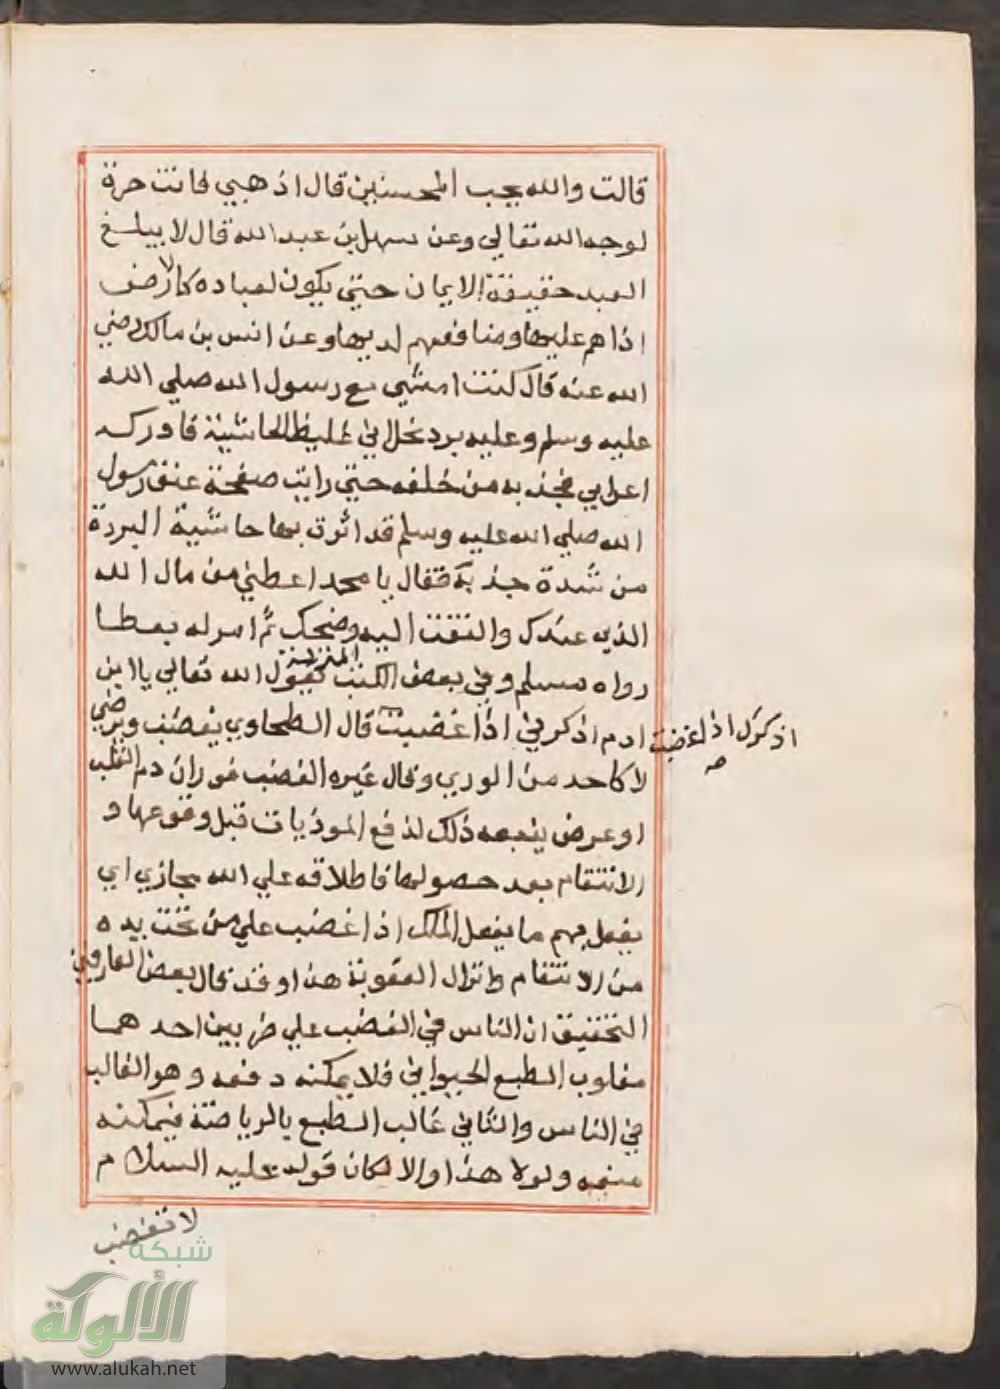 قالت والله يحب المحسنين قال اذهبي فانت حرة
لوجه الله تعالي وعن سهل بن عبد الله قال لا يبلغ
العبد حقيقة الايمان حتي يكون لعباده كالارض
اذاهم عليها ومنافعهم لديها وعن انس بن مالك رضي
الله عنه قال كنت امشي مع رسول الله صلي الله
عليه وسلم وعليه برد نجراني غليظ الحاشية فادركه
اعرابي فجذبه من خلفه حتي رايت صفحة عنق رسول
الله صلي الله عليه وسلم قد اثرت بها حاشية البردة
من شدة جذبه فقال يا محمد اعطني من مال الله
الذي عندك والتفت اليه وضحك ثم امر له بعطا
رواه مسلم وفي بعض الكتب المنزلة يقول الله تعالي يا ابن
ادم اذكرني اذا غضبت قال الطحاوي يغضب ويرضي
اذكرك اذا غضبت
صح
لا كاحد من الوري وقال غيره الغضب فوران دم القلب
او عرض يتبعه ذلك لدفع الموذيات قبل وقوعها و
الانتقام بعد حصولها فاطلاقه علي الله مجازي اي
يفعل بهم ما يفعل الملك اذا غضب علي من تحت يده
من الانتقام وانزال العقوبة هذا وقد قال بعض العارفين
التحقيق ان الناس في الغضب علي ضربين احدهما
مغلوب الطبع الحيواني فلا يمكنه دفعه وهو الغالب
في الناس والثاني غالب الطبع بالرياضة فيمكنه
منعه ولولا هذا والا لكان قوله عليه السلام
لا تغضب
شبكة
الألوكة
www.alukah.net